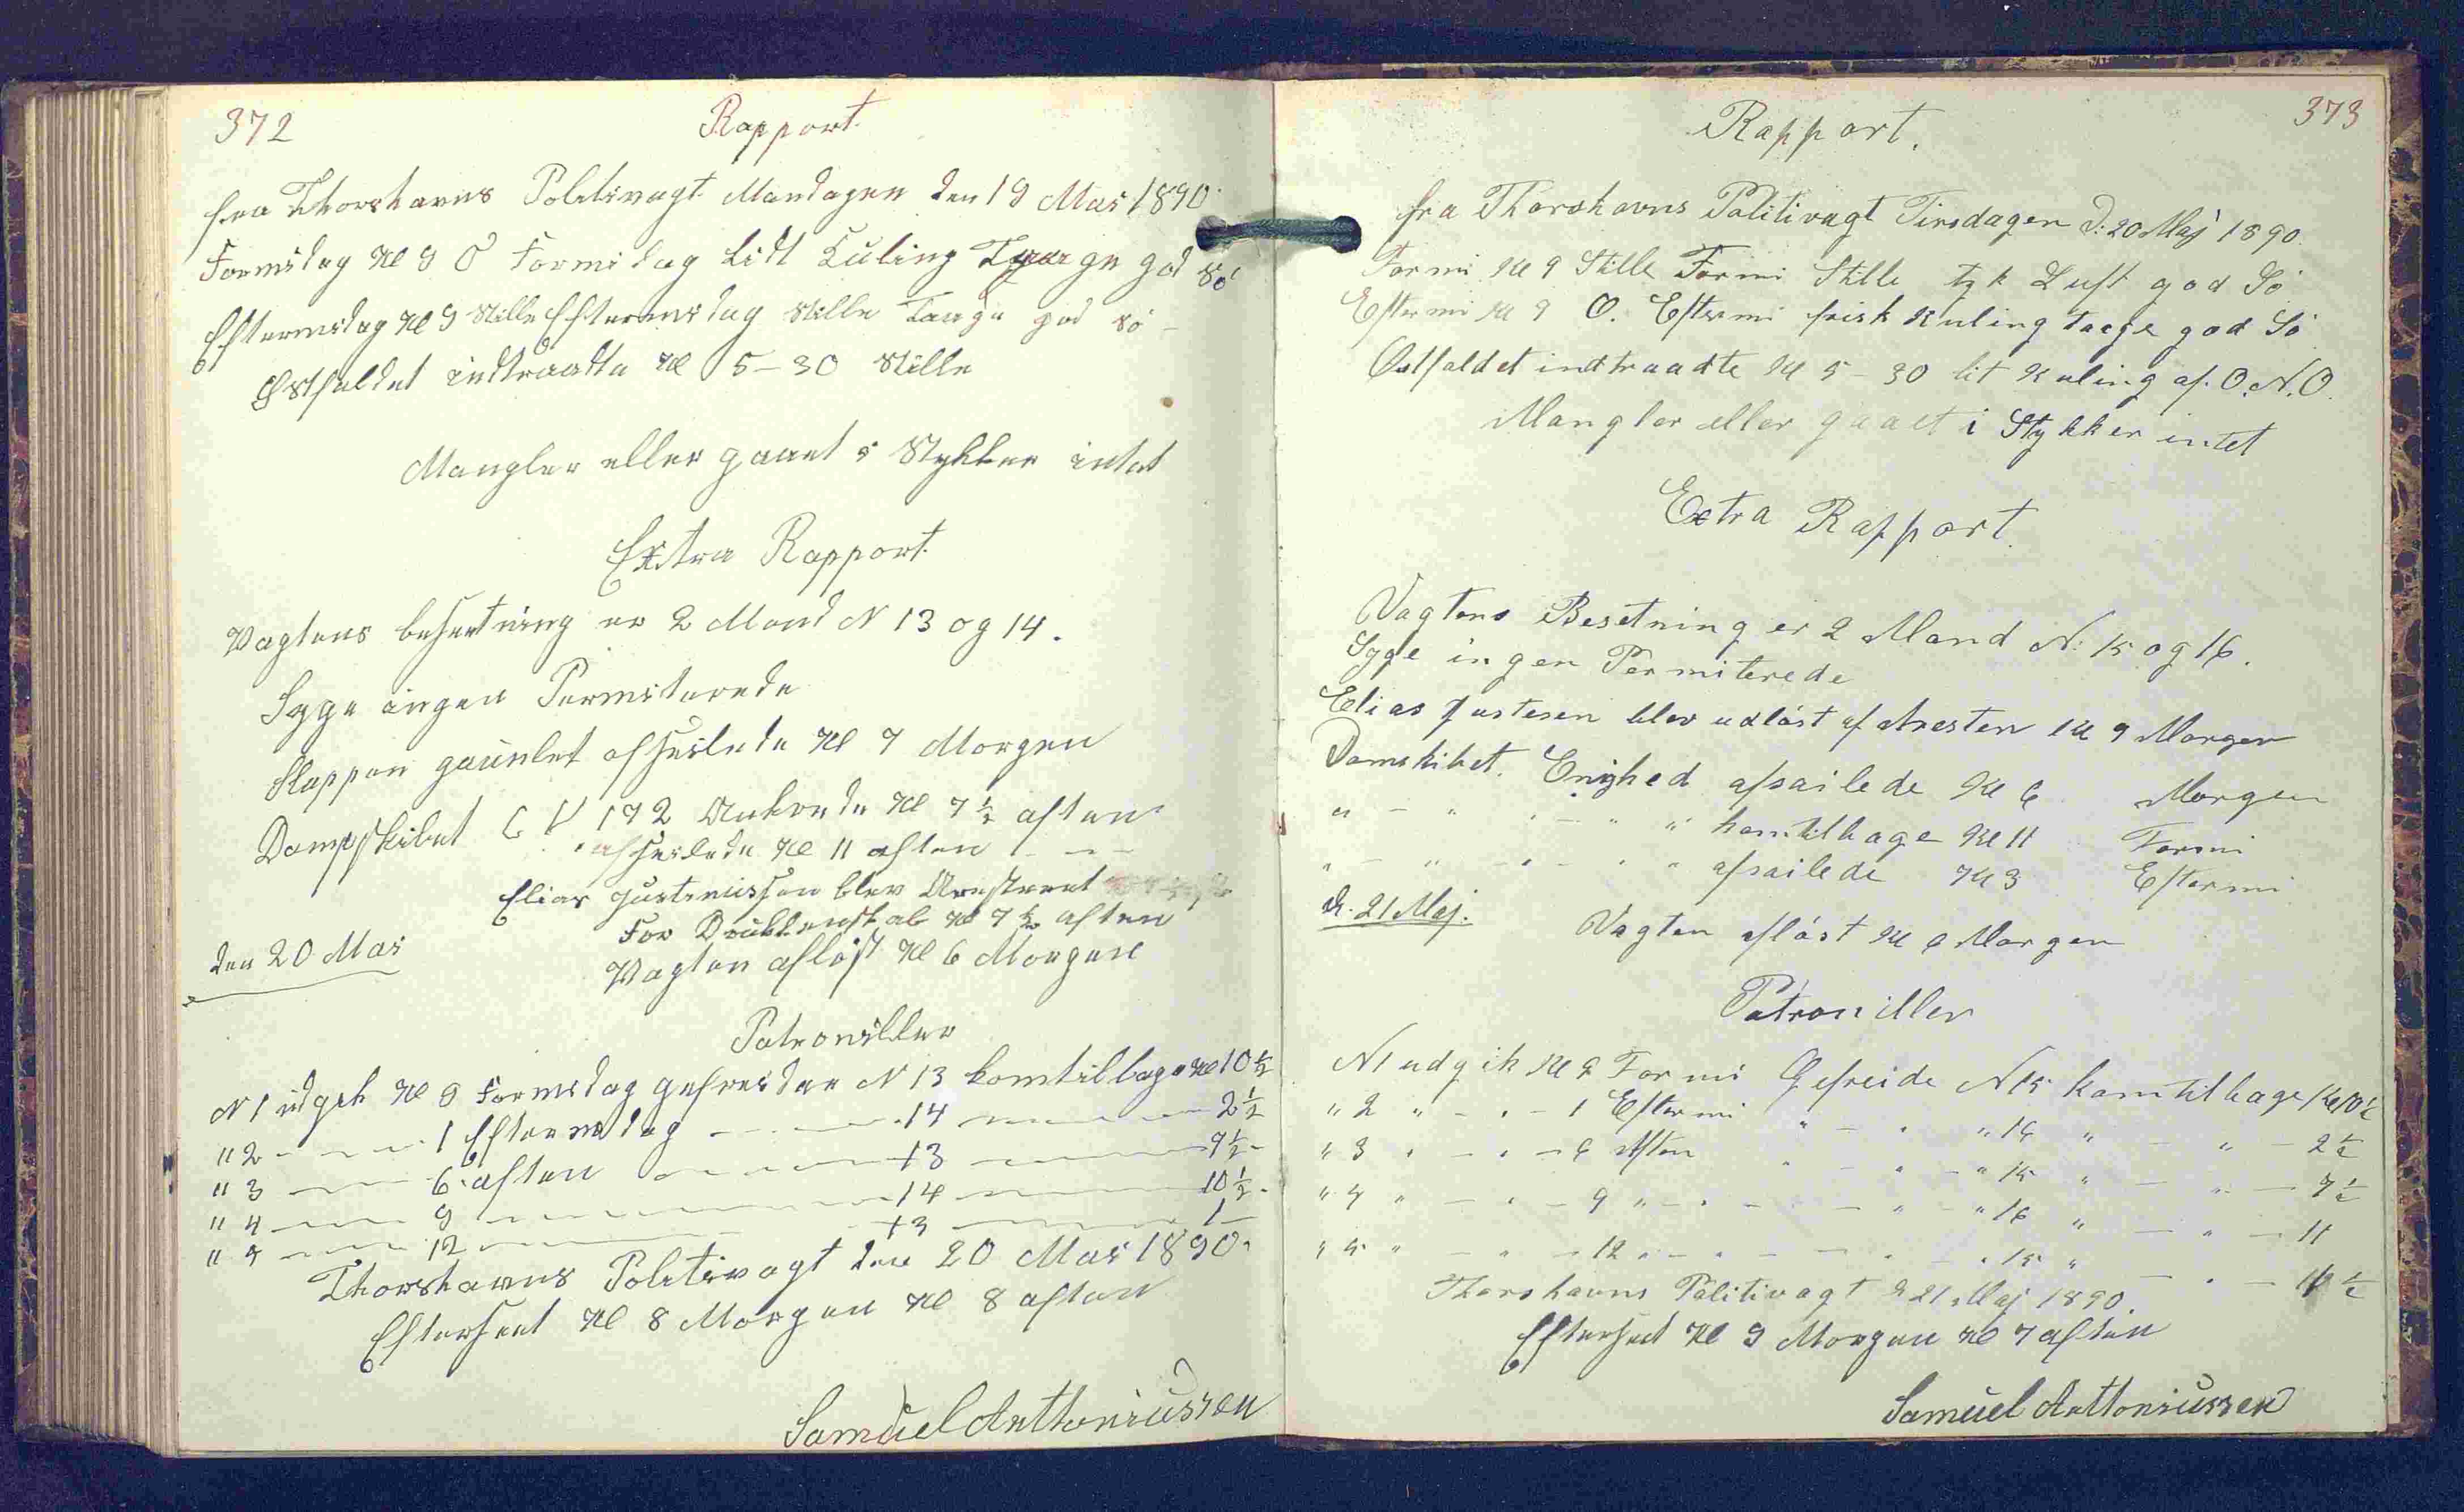 372
Rapport.
fra Thorshavns Politivagt Mandagen den 19 Mai 1890.
Formidag Kl 9 O Formidag lidt Kuling Taage god Sö
Eftermidag Kl 9 Stille Eftermidag Stille Taage god Sö
Østfaldet indtraadte Kl 5-30 Stille
Mangler eller gaaet i Stykker intet
Extra Rapport.
Vagtens besætning er 2 Mand N 13 og 14.
Syge ingen Permiterede
Slappen afseilede Kl 7 Morgen
Dampskibet 172 Ankrede Kl 7½ aften
afseilede Kl 11 aften
Elias Justinussen blev Aresteret
For Drukkenskab Kl 7½ aften
den 20 Mai
Vagten afløst Kl 6 Morgen
Patrouiller
N 1 udgik Kl 9 Formidag gefreider N 13 komtilbage Kl 10½
" 2 — — 1 Eftermidag — — 14 — — 2½
" 3 — — 6 aften — — 13 — — 7½
" 4 — — 9 — — 14 — — 10½
" 5 — — 12 — — 13 — — 1
Thorshavns Politivagt den 20 Mai 1890.
Efterseet Kl 8 Morgen Kl 8 aften
Samuel Anthoniussen
373
Rapport.
fra Thorshavns Politivagt Tirsdagen D: 20 Maj 1890.
Formi Kl 9 Stille Formi Stille tyk Luft god Sö
Eftermi Kl 9 O. Eftermi frisk Kuling taage god Sö
Østfaldet indtraadte Kl 5-30 lit Kuling af O.N.O.
Mangler eller gaaet i Stykker intet
Extra Rapport.
Vagtens Besetning er 2 Mand N: 15 og 16.
Syge ingen Permiterede
Elias Justesen blev udløst af Aresten Kl 9 Morgen
Damskibet. Enighed afsailede Kl 6 Morgen
" — " — " " komtilbage Kl 11 Formi
" — " — " " afsailede Kl 3 Eftermi
d. 21 Maj.
Vagten afløst Kl 6 Morgen
Patrouiller
N 1 udgik Kl 9 Formi Gefreide N 15 kamtilbage Kl 10½
" 2 " — " — 1 Eftermi " — " " 16 " — " — 2½
" 3 " — " — 6 Aften " — " " 15 " — " — 7½
" 4 " — " — 9 " — " — " " 16 " — " — 11
" 5 " — " — 12 " — " — " " 15 " — " — 1½
Thorshavns Politivagt d 21 Maj 1890.
Efterseet Kl 9 Morgen Kl 7 aften
Samuel Anthoniussen